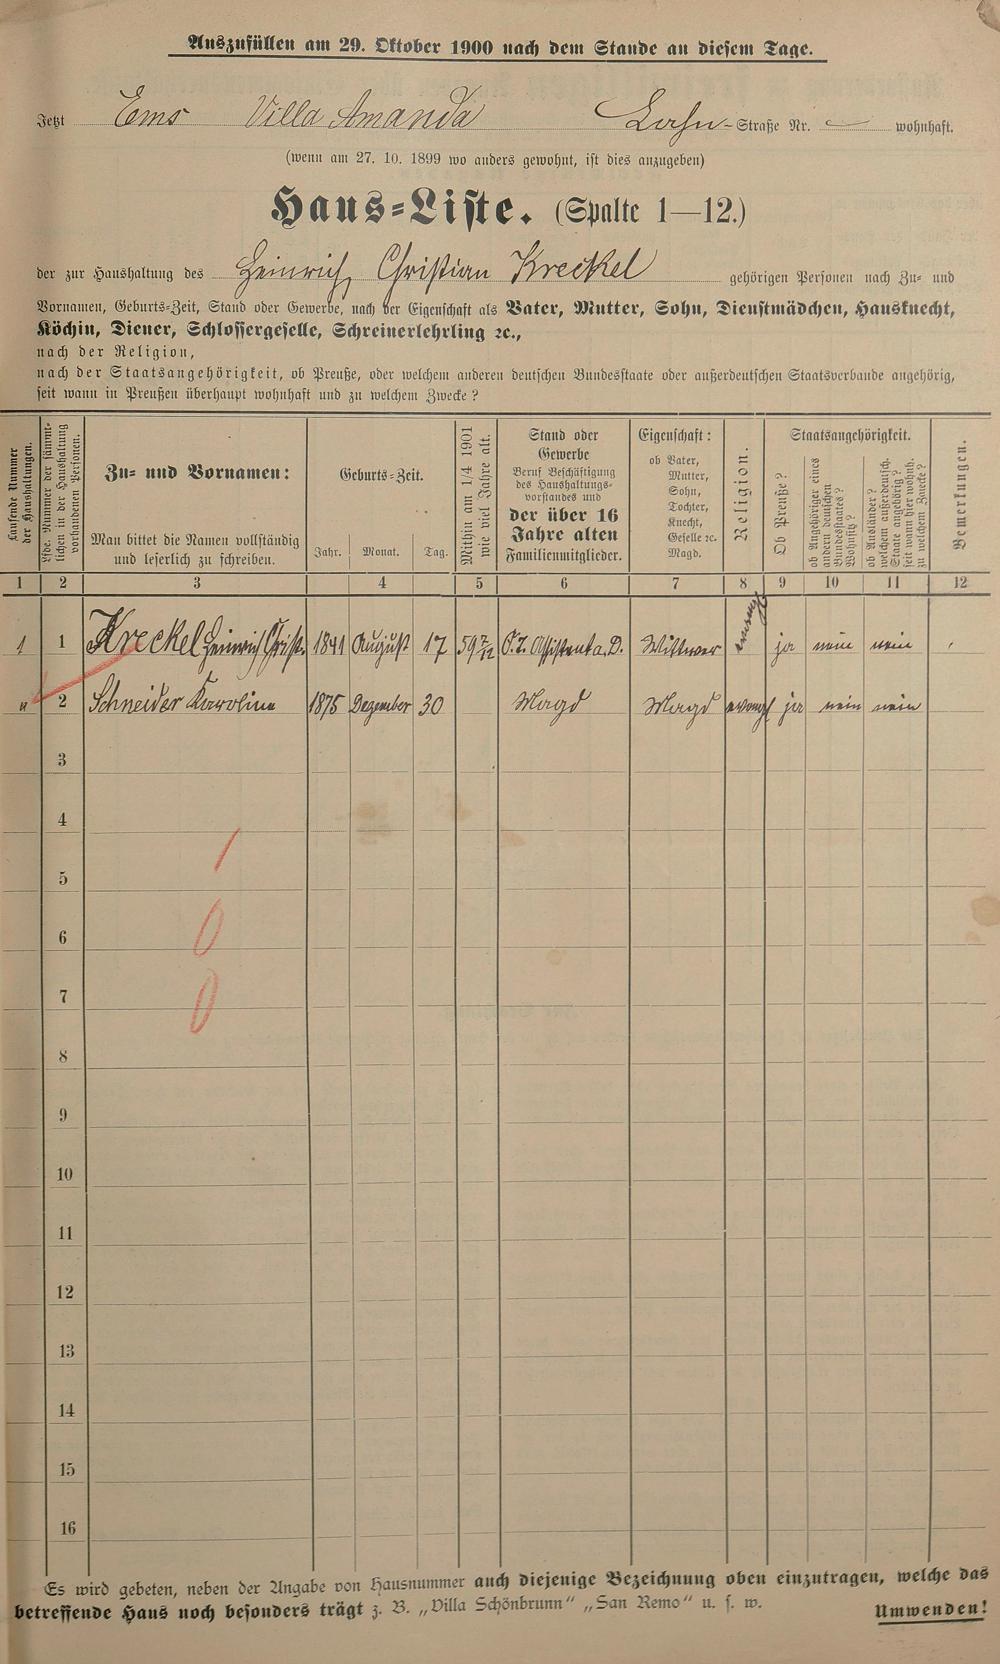 Auszufüllen am 29. Oktober 1900 nach dem Stande an diesem Tage.
Jetzt Ems Villa Amanda Lahn-Straße Nr. — wohnhaft.
(wenn am 27. 10. 1899 wo anders gewohnt, ist dies anzugeben)
Haus-Liste. (Spalte 1—12.)
der zur Haushaltung des Heinrich Christian Kreckel gehörigen Personen nach Zu- und
Vornamen, Geburts-Zeit, Stand oder Gewerbe, nach der Eigenschaft als Vater, Mutter, Sohn, Dienstmädchen, Hausknecht,
Köchin, Diener, Schlossergeselle, Schreinerlehrling ꝛc.,
nach der Religion,
nach der Staatsangehörigkeit, ob Preuße, oder welchem anderen deutschen Bundesstaate oder außerdeutschen Staatsverbande angehörig,
seit wann in Preußen überhaupt wohnhaft und zu welchem Zwecke?
Laufende Nummer
der Haushaltungen.
Lfde. Nummer der sämmt-
lichen in der Haushaltung
vorhandenen Personen.
Zu- und Vornamen:
Man bittet die Namen vollständig
und leserlich zu schreiben.
Geburts-Zeit.
Jahr. Monat. Tag.
Mithin am 1/4 1901
wie viel Jahre alt.
Stand oder
Gewerbe
Beruf Beschäftigung
des Haushaltungs-
vorstandes und
der über 16
Jahre alten
Familienmitglieder.
Eigenschaft:
ob Vater,
Mutter,
Sohn,
Tochter,
Knecht,
Geselle ꝛc.
Magd.
Religion.
Staatsangehörigkeit.
Ob Preuße?
ob Angehöriger eines
andern deutschen
Bundesstaates?
Wohnsitz?
ob Ausländer?
welchem außerdeutsch.
Staate angehörig?
seit wann hier wohnh.
zu welchem Zwecke?
Bemerkungen.
1 2 3 4 5 6 7 8 9 10 11 12
1 1 Kreckel Heinrich Christ. 1841 August 17 59 7/12 Assistent a. D. Wittwer evang. ja nein nein
" 2 Schneider Karoline 1875 Dezember 30 Magd Magd evangl ja nein nein
3
4
5 1
6 0
7 0
8
9
10
11
12
13
14
15
16
Es wird gebeten, neben der Angabe von Hausnummer auch diejenige Bezeichnung oben einzutragen, welche das
betreffende Haus noch besonders trägt z. B. „Villa Schönbrunn" „San Remo" u. s. w.
Umwenden!